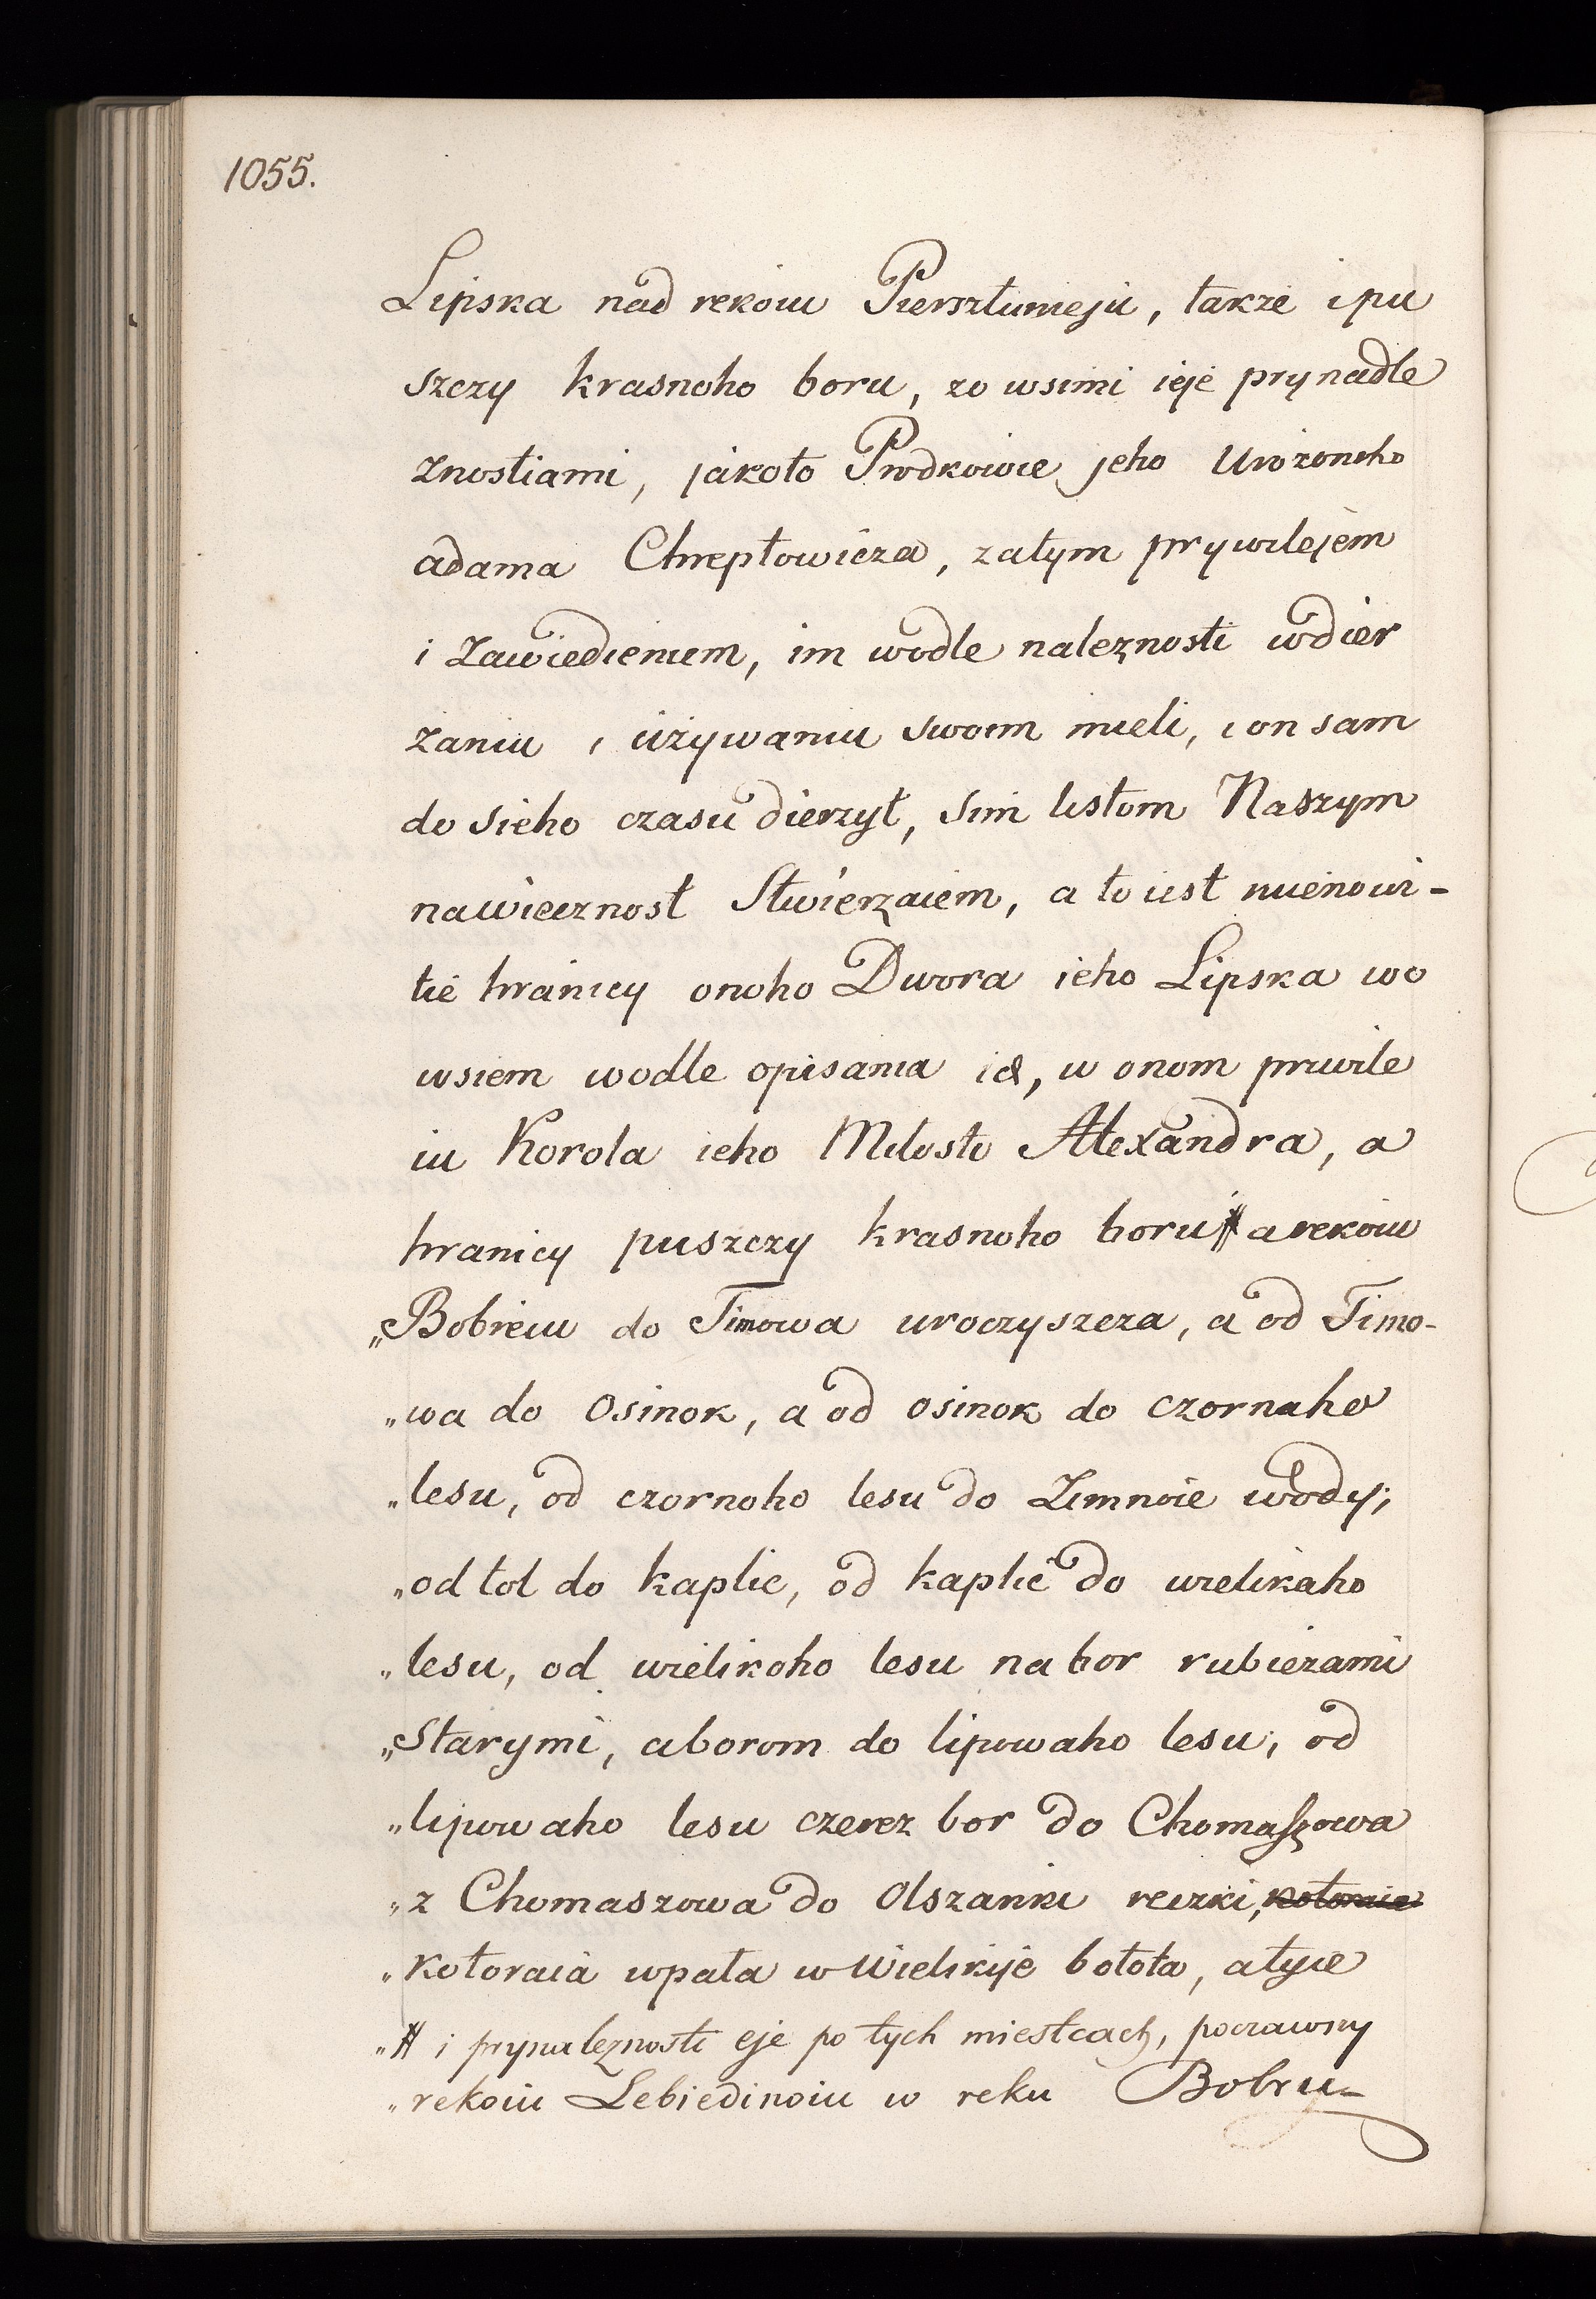 1055.
Lipska nad rekoiu Piersztunieju, takze i pu
szczy krasnoho boru, zo wsimi ieje prynadle
znostiami, jakoto Prodkowie jeho Urożonoho
adama Chreptowicza, zatym prywilejem
i Zawiedieniem, im wodle należnosti wdier
żaniu i używaniu swoim mieli, i on sam
do sieho czasu dierzył, sim listom Naszym
nawiecznost Stwierżaiem, a to iest mienowi-
tie hranicy onoho Dwora ieho Lipska wo
wsiem wodle opisania ich, w onom priwile
iu Korola ieho Milosti Alexandra, a
hranicy puszczy krasnoho boru # a rekoiu
„Bobreiu do Timowa uroczyszcza, a od Timo-
„wa do Osinok, a od osinok do czornaho
„lesu, od czornoho lesu do Zimnoie wody;
„od tol do kaplic, od kaplic do wielikaho
„lesu, od wielikoho lesu na bor rubieżami
„Starymi, a borom do lipowaho lesu, od
„lipowaho lesu czerez bor do Chomaszowa
„z Chomaszowa do Olszanki reczki, kotoraia
„kotoraia wpała w Wielikije bołota, a tyie
„# i prynależnosti eje po tych miestcach, poczawszy
„rekoiu Lebiedinoiu w reku Bobru-